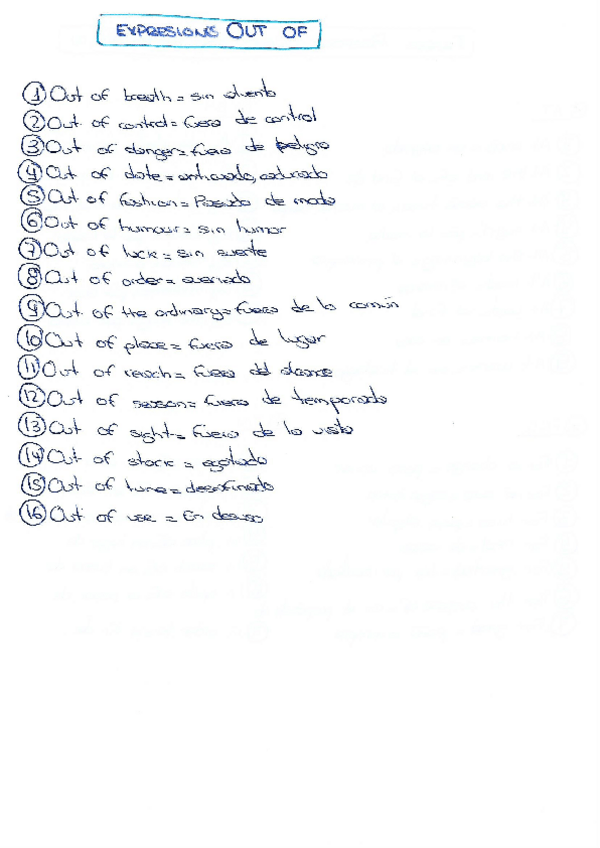 EXPRESIONS OUT OF
1 Out of breath = sin aliento
2 Out of control = fuera de control
3 Out of danger = fuera de peligro
4 Out of date = anticuado, caducado
5 Out of fashion = Pasado de moda
6 Out of humour = sin humor
7 Out of luck = sin suerte
8 Out of order = averiado
9 Out of the ordinary = fuera de lo común
10 Out of place = fuera de lugar
11 Out of reach = fuera del alcance
12 Out of season = fuera de temporada
13 Out of sight = fuera de la vista
14 Out of stock = agotado
15 Out of tune = desafinado
16 Out of use = En desuso